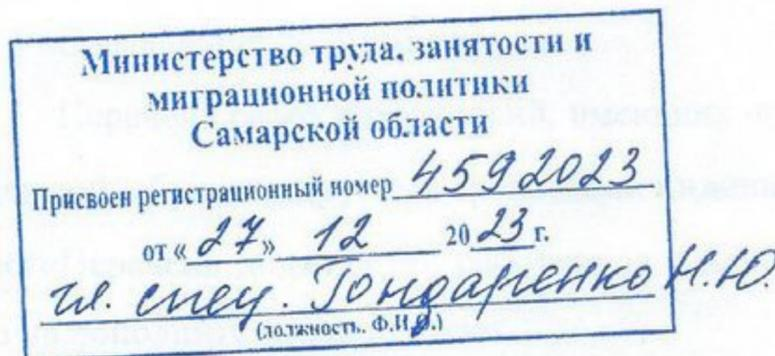 Министерство труда, занятости и
миграционной политики
Самарской области
Присвоен регистрационный номер 4592023
от « 27 » 12 20 23 г.
гл. спец. Гондаренко Н.Ю.
(должность, Ф.И.О.)